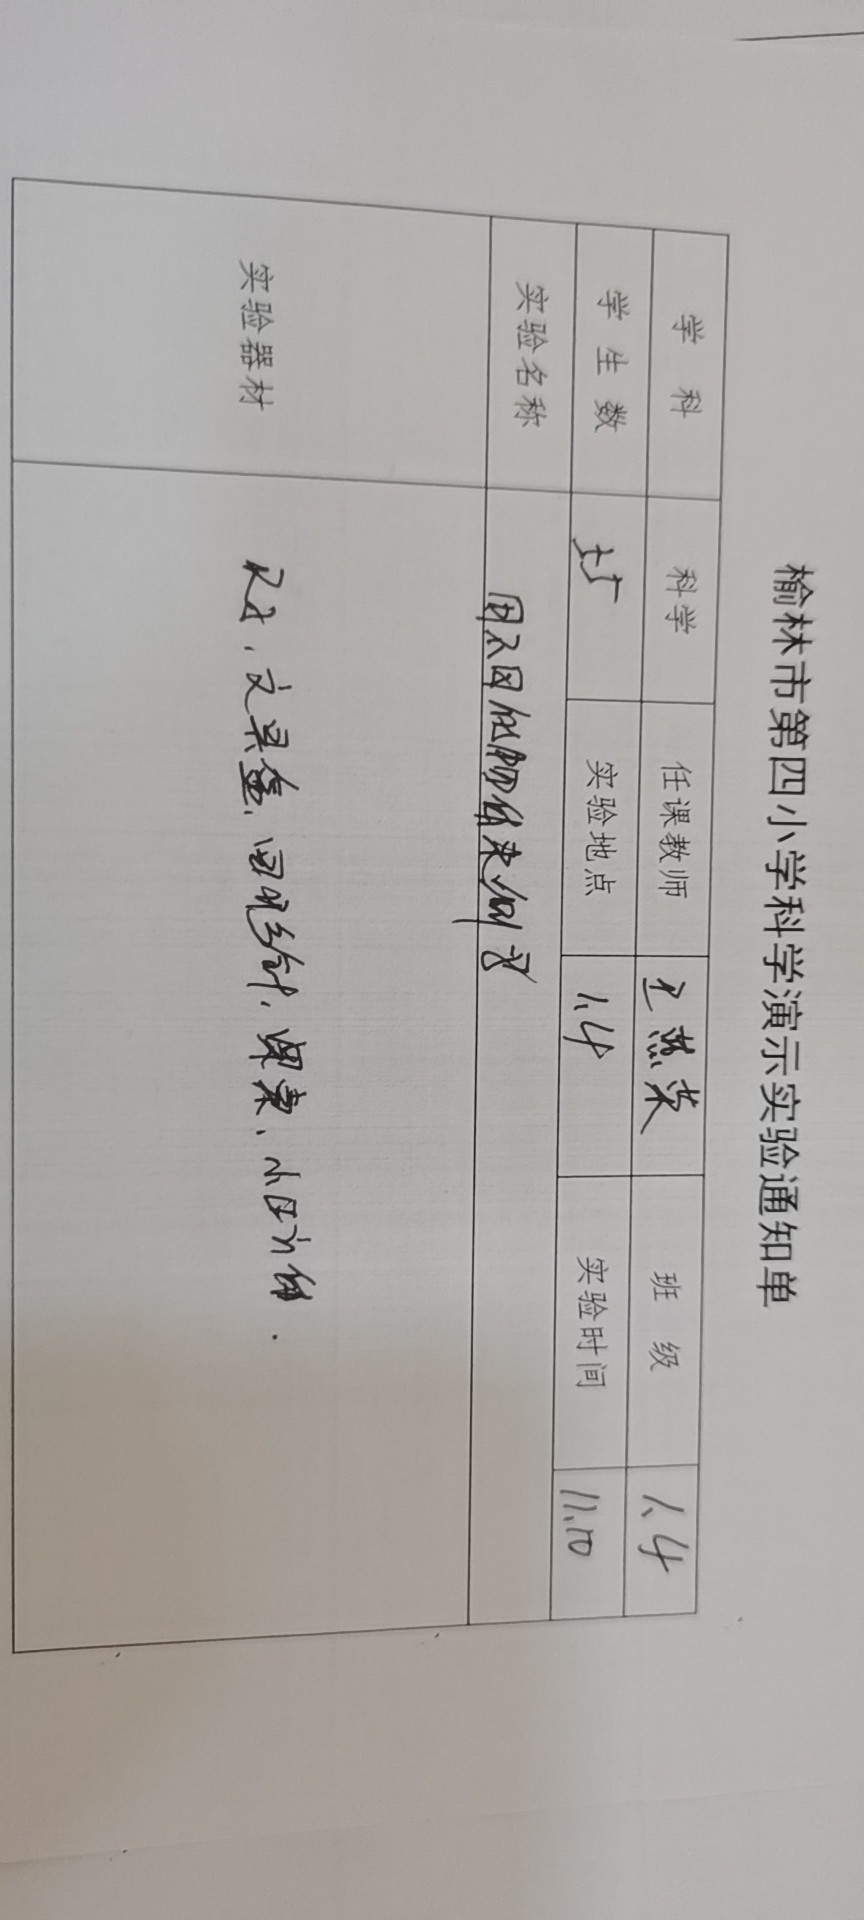 榆林市第四小学科学演示实验通知单
学 科 科学 任课教师 班 级 1.4
学生数 实验地点 1.4 实验时间 11.10
实验名称 用不同的物体来测量
实验器材 尺子、文具盒、回形针、课桌、小正方体.